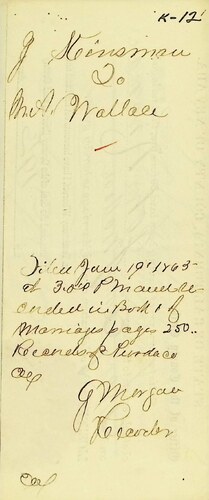 K-12
J Hinsman
To
M A Wallace
Filed Jany 19th 1863
at 3 ock P M and Re
corded in Book 1 of
Marriages pages 250..
Records
J Morgan
Recorder